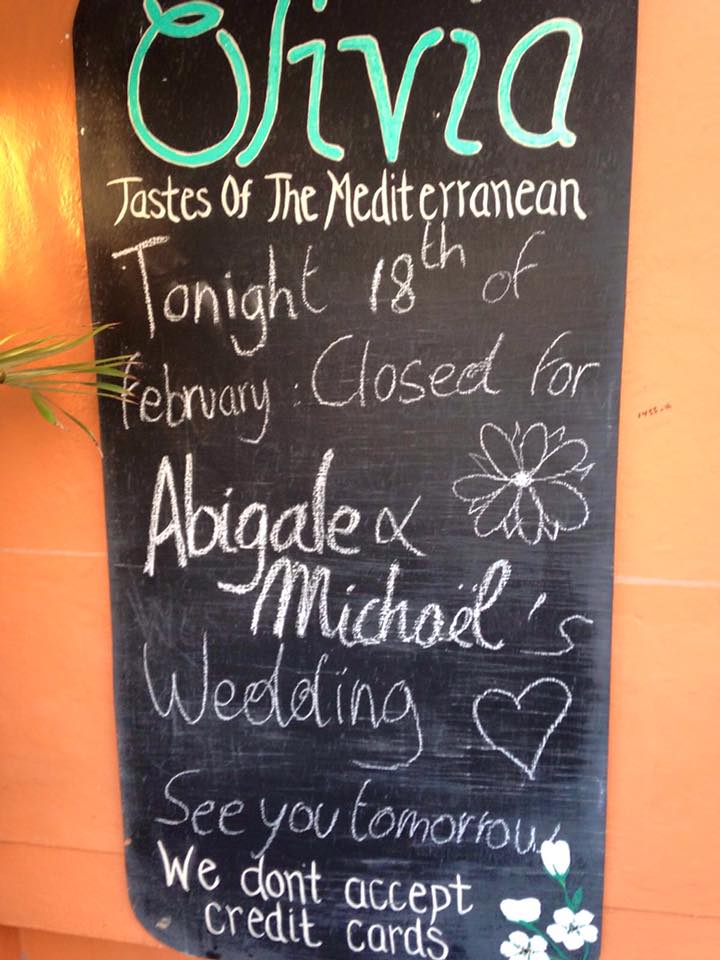 Olivia
Tastes Of The Mediterranean
Tonight 18th of
February : Closed for
Abigale &
Michaël's
Wedding
See you tomorrow
We don't accept
credit cards